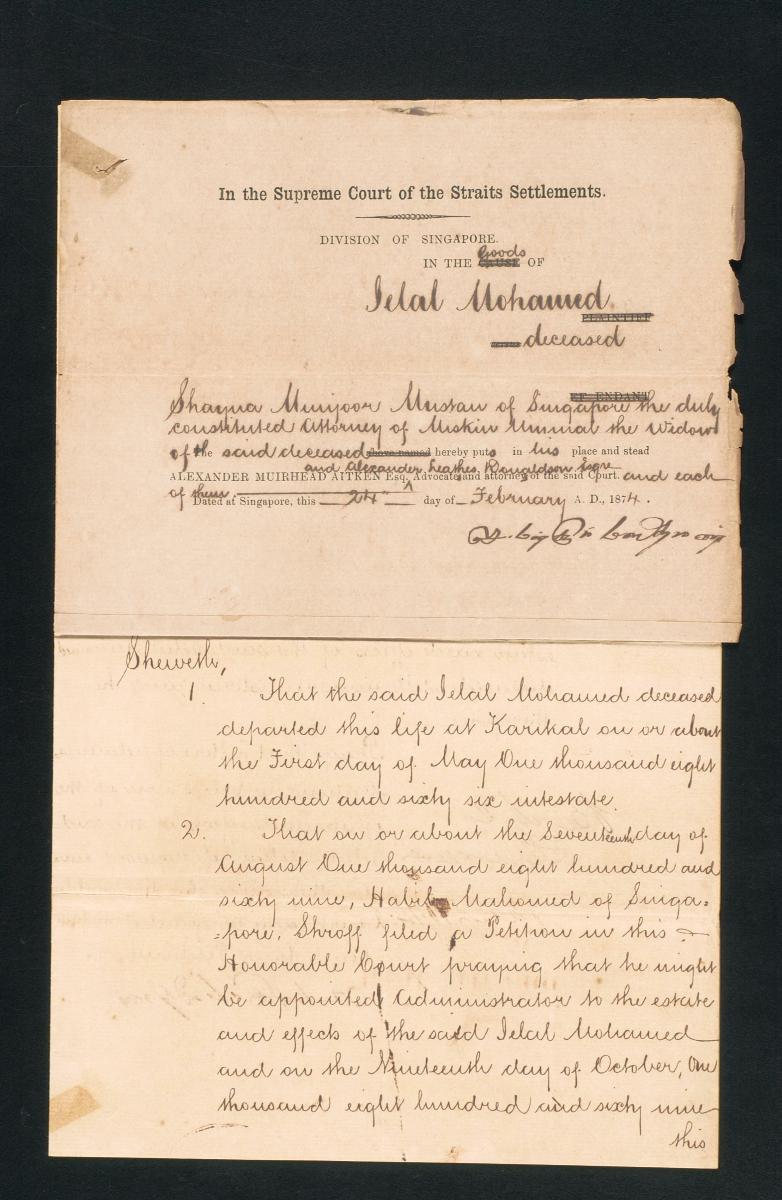 In the Supreme Court of the Straits Settlements.
DIVISION OF SINGAPORE.
Goods
IN THE CAUSE OF
Jelal Mohamed
PLAINTIFF
deceased
Shayna Munjoor Mustan of Singapore the duly
constituted Attorney of Miskin Ummal the Widow
of the said deceased above-named hereby puts in his place and stead
and Alexander Leathes Donaldson Esqre
ALEXANDER MUIRHEAD AITKEN Esq. Advocate and attorney of the said Court. and each
of them.
Dated at Singapore, this 24th day of February A. D., 1874.
Sheweth,
1. That the said Jelal Mohamed deceased
departed this life at Karikal on or about
the First day of May One thousand eight
hundred and sixty six intestate.
2. That on or about the Seventeenth day of
August One thousand eight hundred and
sixty nine, Habib Mahomed of Singa=
=pore, Shroff filed a Petition in this
Honorable Court praying that he might
be appointed Administrator to the estate
and effects of the said Jelal Mohamed
and on the Nineteenth day of October, One
thousand eight hundred and sixty nine
this